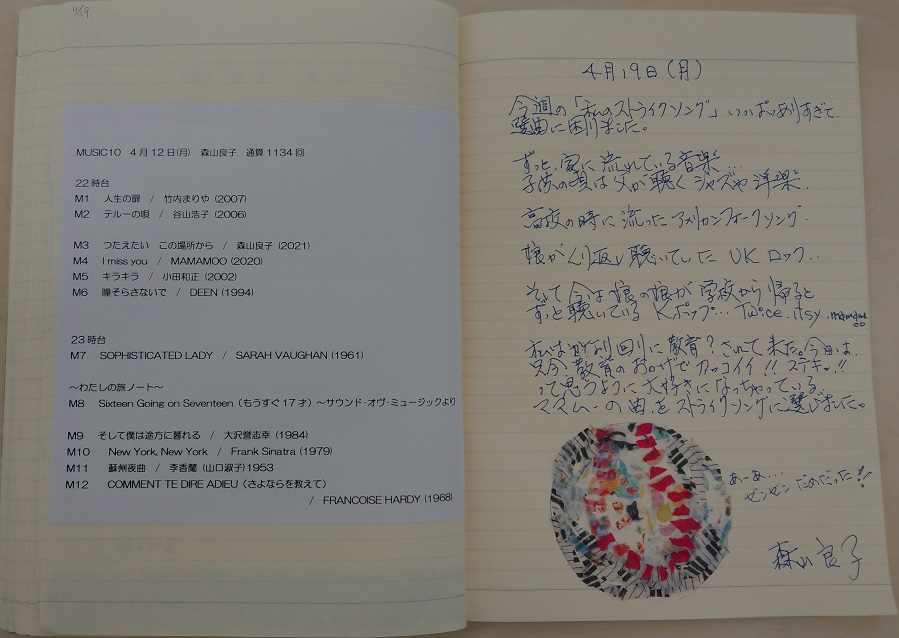 4/19
MUSIC10 4月12日(月) 森山良子 通算1134回
22時台
M1 人生の扉 / 竹内まりや (2007)
M2 テルーの唄 / 谷山浩子 (2006)
M3 つたえたい この場所から / 森山良子 (2021)
M4 I miss you / MAMAMOO (2020)
M5 キラキラ / 小田和正 (2002)
M6 瞳そらさないで / DEEN (1994)
23時台
M7 SOPHISTICATED LADY / SARAH VAUGHAN (1961)
～わたしの旅ノート～
M8 Sixteen Going on Seventeen（もうすぐ17才）～サウンド・オヴ・ミュージックより
M9 そして僕は途方に暮れる / 大沢誉志幸 (1984)
M10 New York, New York / Frank Sinatra (1979)
M11 蘇州夜曲 / 李香蘭 (山口淑子)1953
M12 COMMENT TE DIRE ADIEU（さよならを教えて）
/ FRANCOISE HARDY (1968)
4月19日(月)
今週の「私のストライクソング」いっぱいありすぎて
選曲に困りました。
ずっと、家に流れている音楽...
子供の頃は父が聴くジャズや洋楽.
高校の時に流行ったアメリカンフォークソング.
娘がくり返し聴いていたUKロック..
そして今は娘の娘が学校から帰ると
ずっと聴いているKポップ...Twice.itsy.
私は 回りに教育?されて来た。今回は、
只今教育のおかげでカッコイイ!!ステキ!!
って思うように大好きになっちゃっている、
ママムーの曲をストライクソングに選びました。
あーあ...
ゼンゼンだめだった!!
森山良子